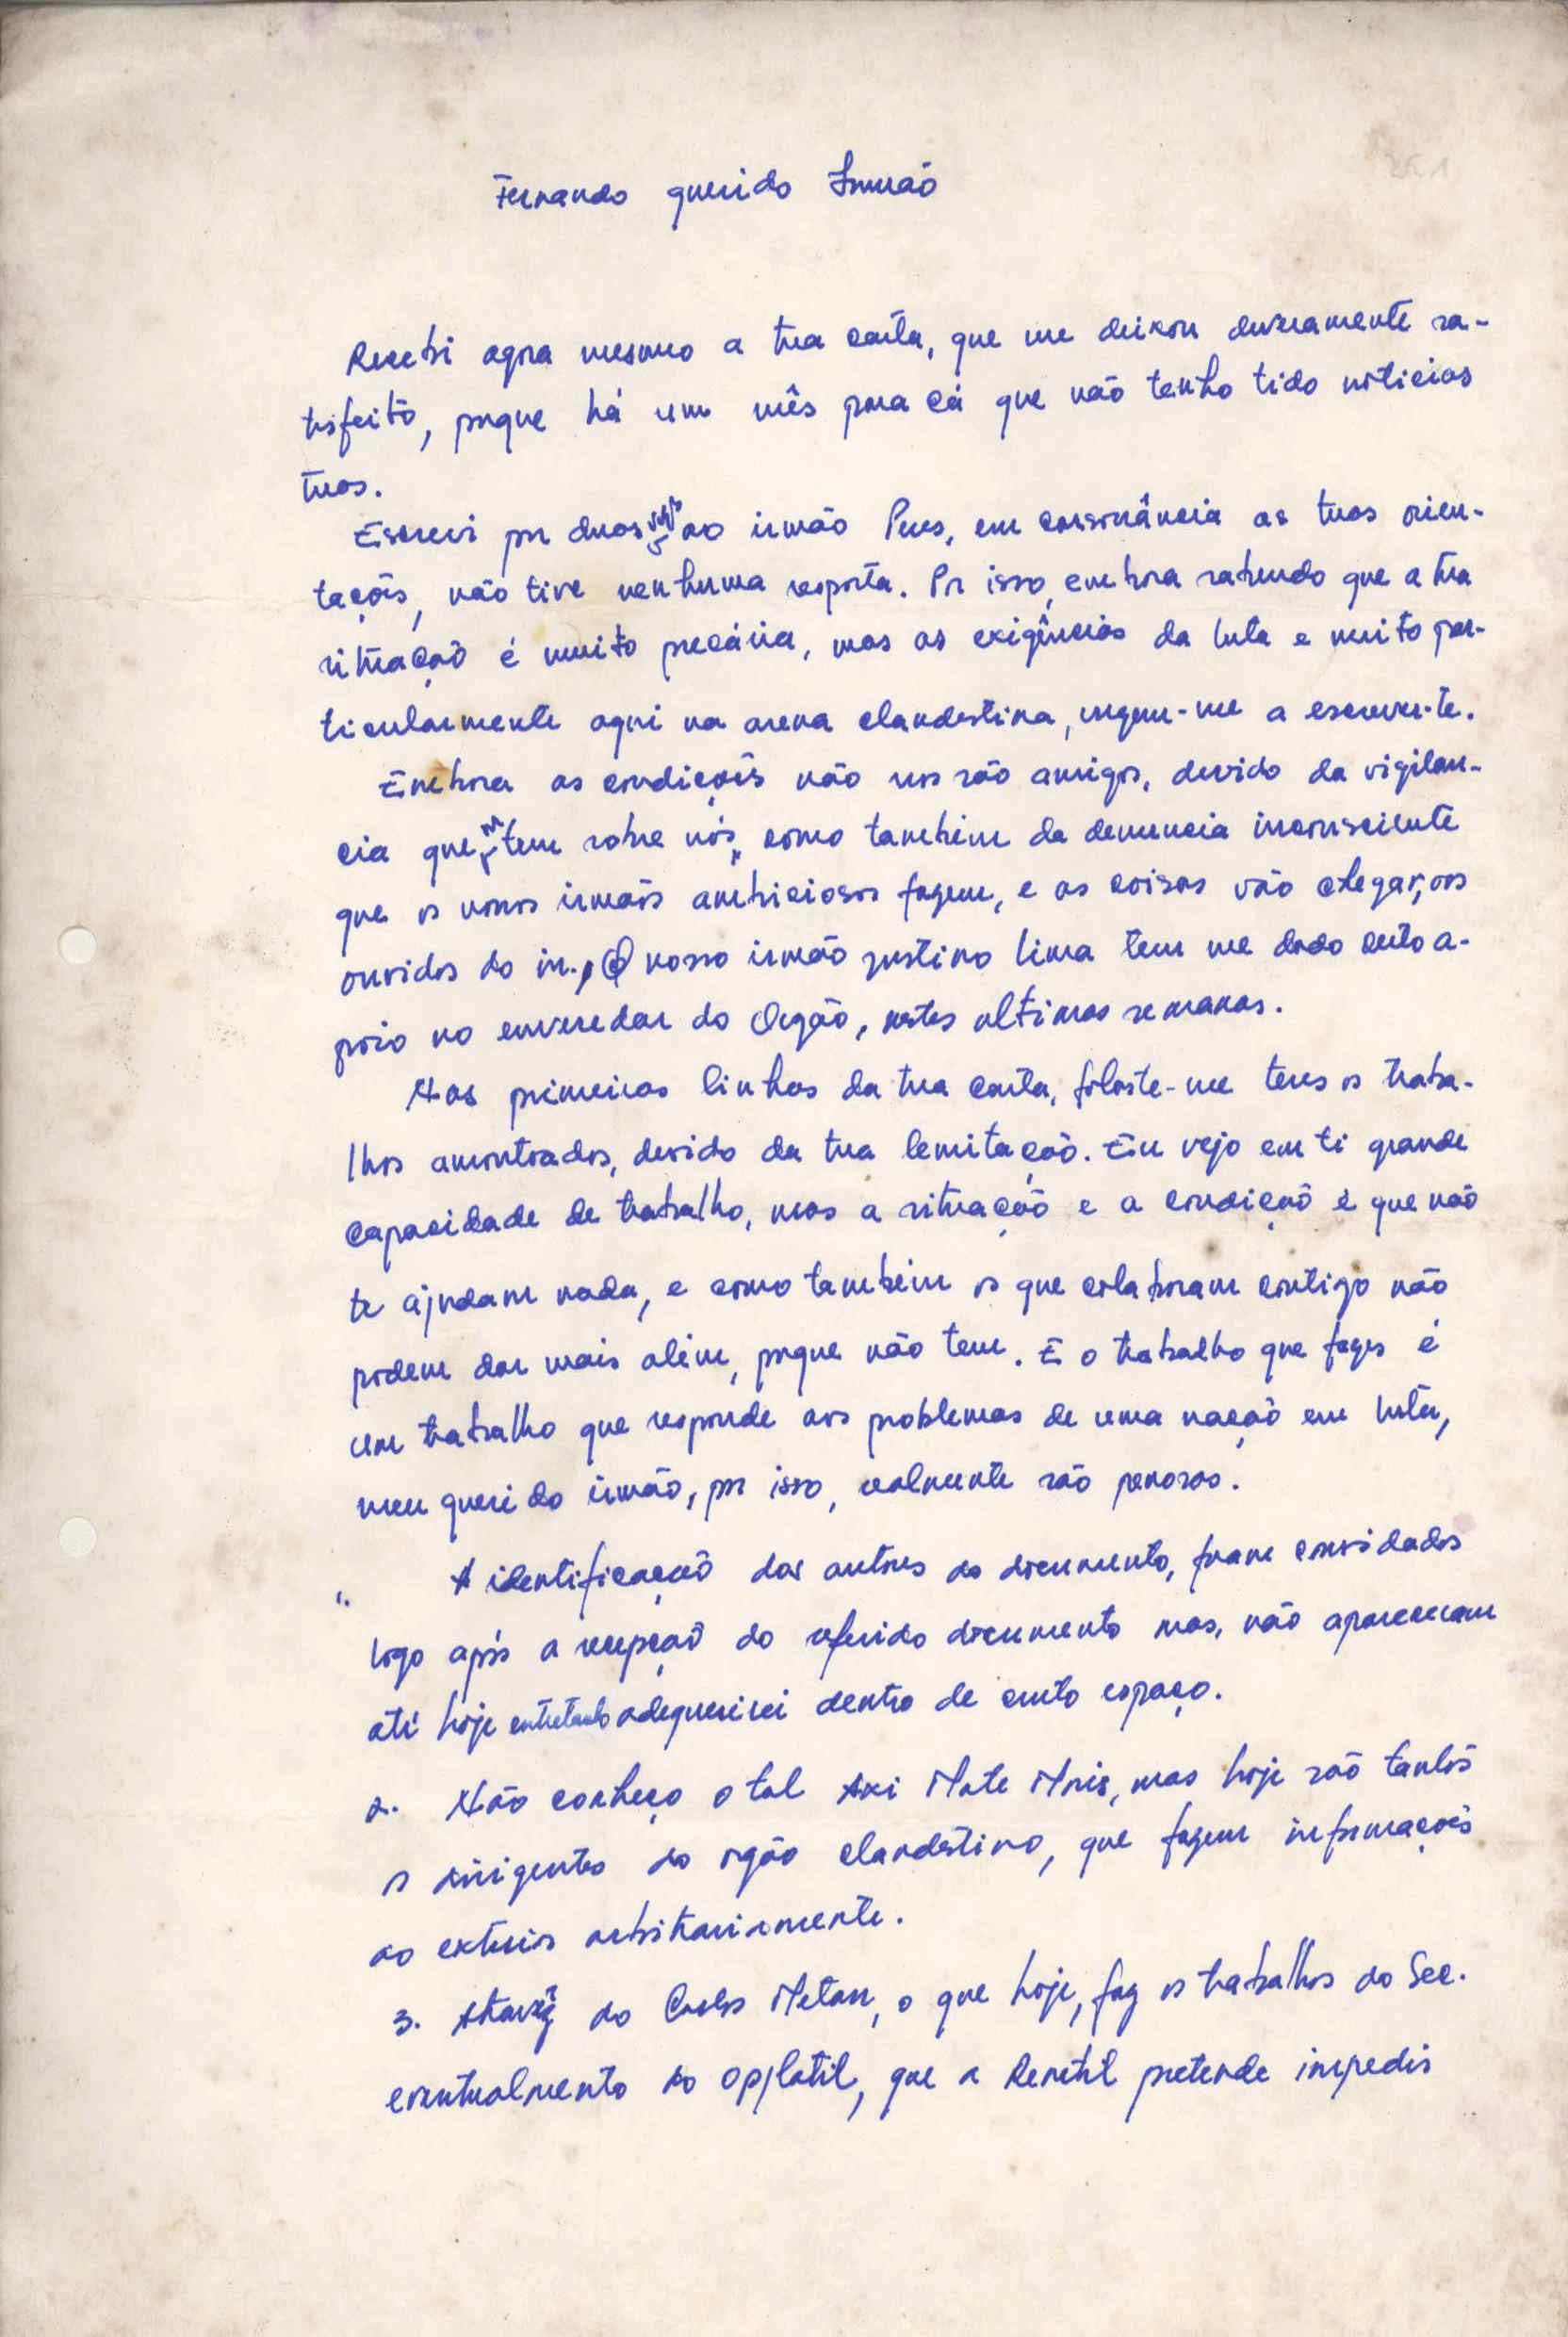 Fernando querido Irmão
Recebi agora mesmo a tua carta, que me deixou deveramente sa-
tisfeito, porque há um mês para cá que não tenho tido noticias
tuas.
Escrevi por duas vezes ao irmão Pires, em consonância as tuas orien-
tações, não tive nenhuma resposta. Por isso, embora sabendo que a tua
situação é muito precária, mas as exigências da luta e muito par-
ticularmente aqui na arena clandestina, urgem-me a escrever-te.
Embora as condições não nos são amigos, devido da vigilan-
cia que tem sobre nós, como também da denuncia inconsciente
que os nonos irmãos ambiciosos fazem, e as coisas vão chegar, aos
ouvidos do in., O nosso irmão Justino Lima tem me dado certo a-
poio no enveredar do Orgão, nestas ultimas semanas.
Nas primeiras linhas da tua carta, falaste-me teres os traba-
lhos amontoados, devido da tua lemitação. Eu vejo em ti grande
capacidade de trabalho, mas a situação e a condição é que não
te ajudam nada, e como também os que colaboram contigo não
podem dar mais além, porque não tem. E o trabalho que fazes é
um trabalho que responde aos problemas de uma nação em luta,
meu querido irmão, por isso, realmente são penosos.
1. A identificação dos autores do documento, foram convidados
logo após a recepção do referido documento mas, não apareceram
até hoje entretanto adequerirei dentro de curto espaço.
2. Não conheço o tal Axi Mate Moris, mas hoje são tantos
os dirigentes do orgão clandestino, que fazem informações
ao exterior arbitrariamente.
3. Através do Carlos Metan, o que hoje, faz os trabalhos do Sec.
eventualmento do Opjlatil, que a Renetil pretende impedir